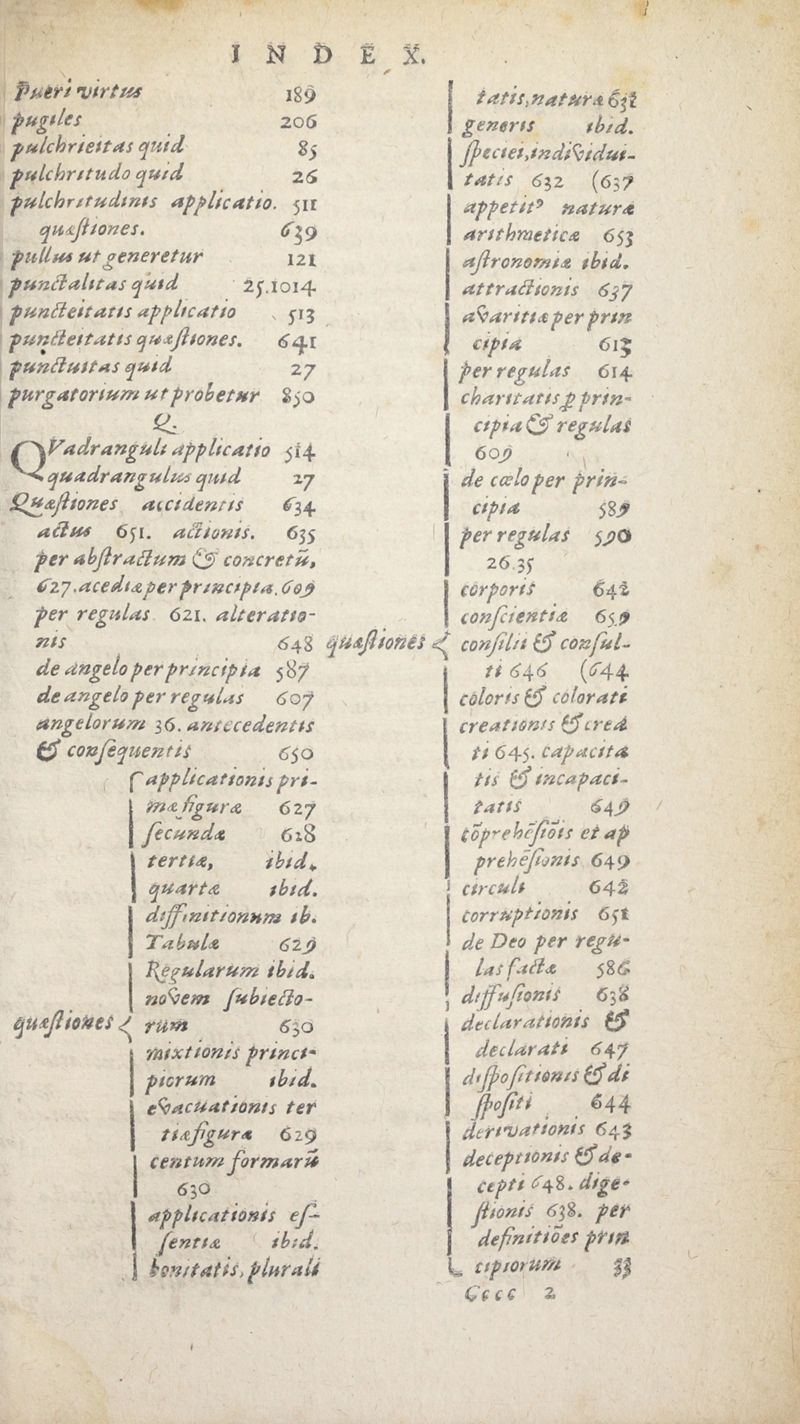 INDEX.
pueri virtus 189
pugiles 206
pulchrieitas quid 85
pulchritudo quid 26
pulchritudinis applicatio. 511
quæstiones. 639
pullus ut generetur 121
punctalitas quid 25.1014
puncteitatis applicatio 513
puncteitatis quæstiones. 641
punctuitas quid 27
purgatorium ut probetur 850
Q.
QVadranguli applicatio 514
quadrangulus quid 27
Quæstiones accidentis 634
actus 651. actionis. 635
per abstractum & concretũ,
627. acediæ per principia. 609
per regulas 621. alteratio-
nis 648
de angelo per principia 587
de angelo per regulas 607
angelorum 36. antecedentis
& consequentis 650
quæstiones
applicationis pri-
mæ figuræ 627
secundæ 628
tertiæ, ibid.
quartæ ibid.
diffinitionum ib.
Tabulæ 629
Regularum ibid.
novem subiecto-
rum 630
mixtionis princi-
piorum ibid.
evacuationis ter
tiæ figuræ 629
centum formarũ
630
applicationis es-
sentiæ ibid.
bonitatis, plurali
quæstiones
tatis, natura 631
generis ibid.
speciei, individui-
tatis 632 (637
appetitꝰ naturæ
arithmeticæ 653
astronomiæ ibid.
attractionis 637
avaritiæ per prin
cipia 613
per regulas 614
charitatis ꝑ prin-
cipia & regulas
609
de cœlo per prin-
cipia 589
per regulas 590
26.35
corporis 642
conscientiæ 659
consilii & consul-
ti 646 (644
coloris & colorati
creationis & crea
ti 645. capacita
tis & incapaci-
tatis 649
cõprehẽsiõis et ap
prehẽsionis 649
circuli 642
corruptionis 651
de Deo per regu-
las facta 586
diffusionis 638
declarationis &
declarati 647
dispositionis & di
spositi 644
derivationis 643
deceptionis & de-
cepti 648. dige-
stionis 638. per
definitiões prin
cipiorum 33
Cccc 2